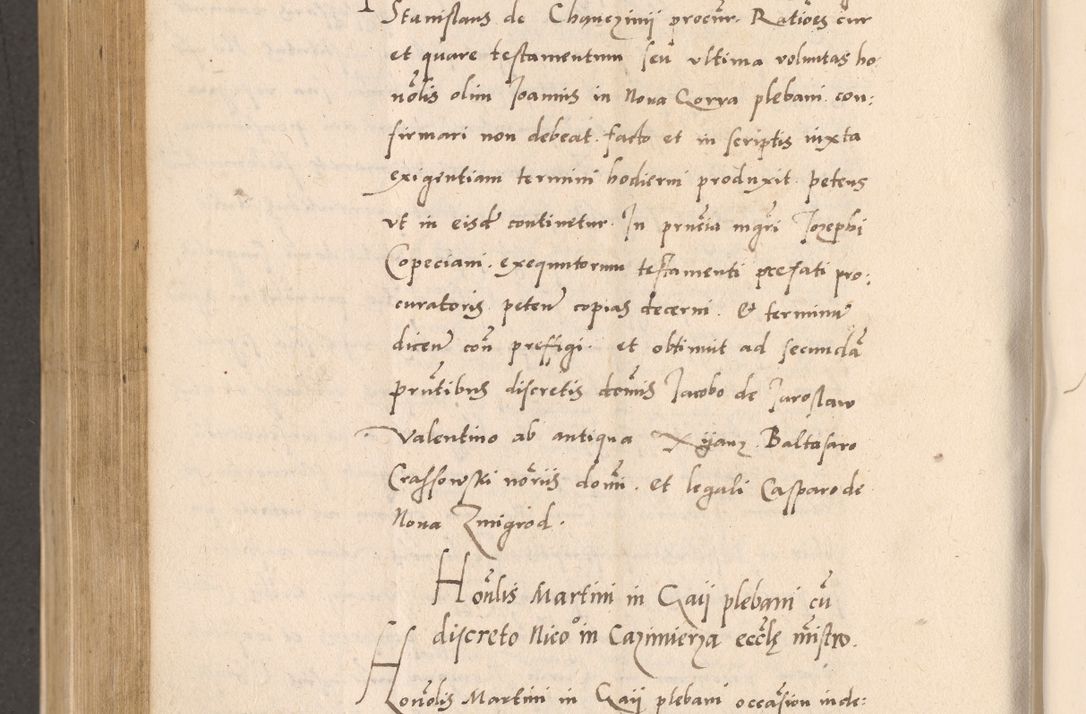 Stanislaus de Chqnczinij procur. Rationes cur
et quare testamentum seu ultima voluntas ho
nolis olim Joannis in Nova Gorra plebani con:
firmari non debeat. facto et in scriptis iuxta
exigentiam termini hodierni produxit petens
ut in eisd continetur. In pruncia mgri Josephi
Copeciani. exequutorum testamenti prefati pro:
curatoris peten copias decerni. Et terminu
dicen con preffigi. et obtinuit ad secunda
pruntibus discretis donis Jacobo de Jaroslaw
Valentino ab antiqua Baltasaro
Crassowski noriis domi. et legali Casparo de
Nova Zmigrod.
Honlis Martini in Gaij plebani cu
discreto Nico in Cazimierza eccle mistro.
Honolis Martini in Gaij plebani occasion inde: